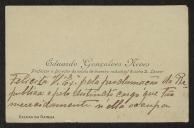 Eduardo Gonçalves Neves
Professor e director da escola de desenho industrial Rainha D. Leonor
Felicito V. Ex.ª pela proclamação da Re-
publica e pelo elevado cargo que tão
merecidamente n'ella occupa
CALDAS DA RAINHA